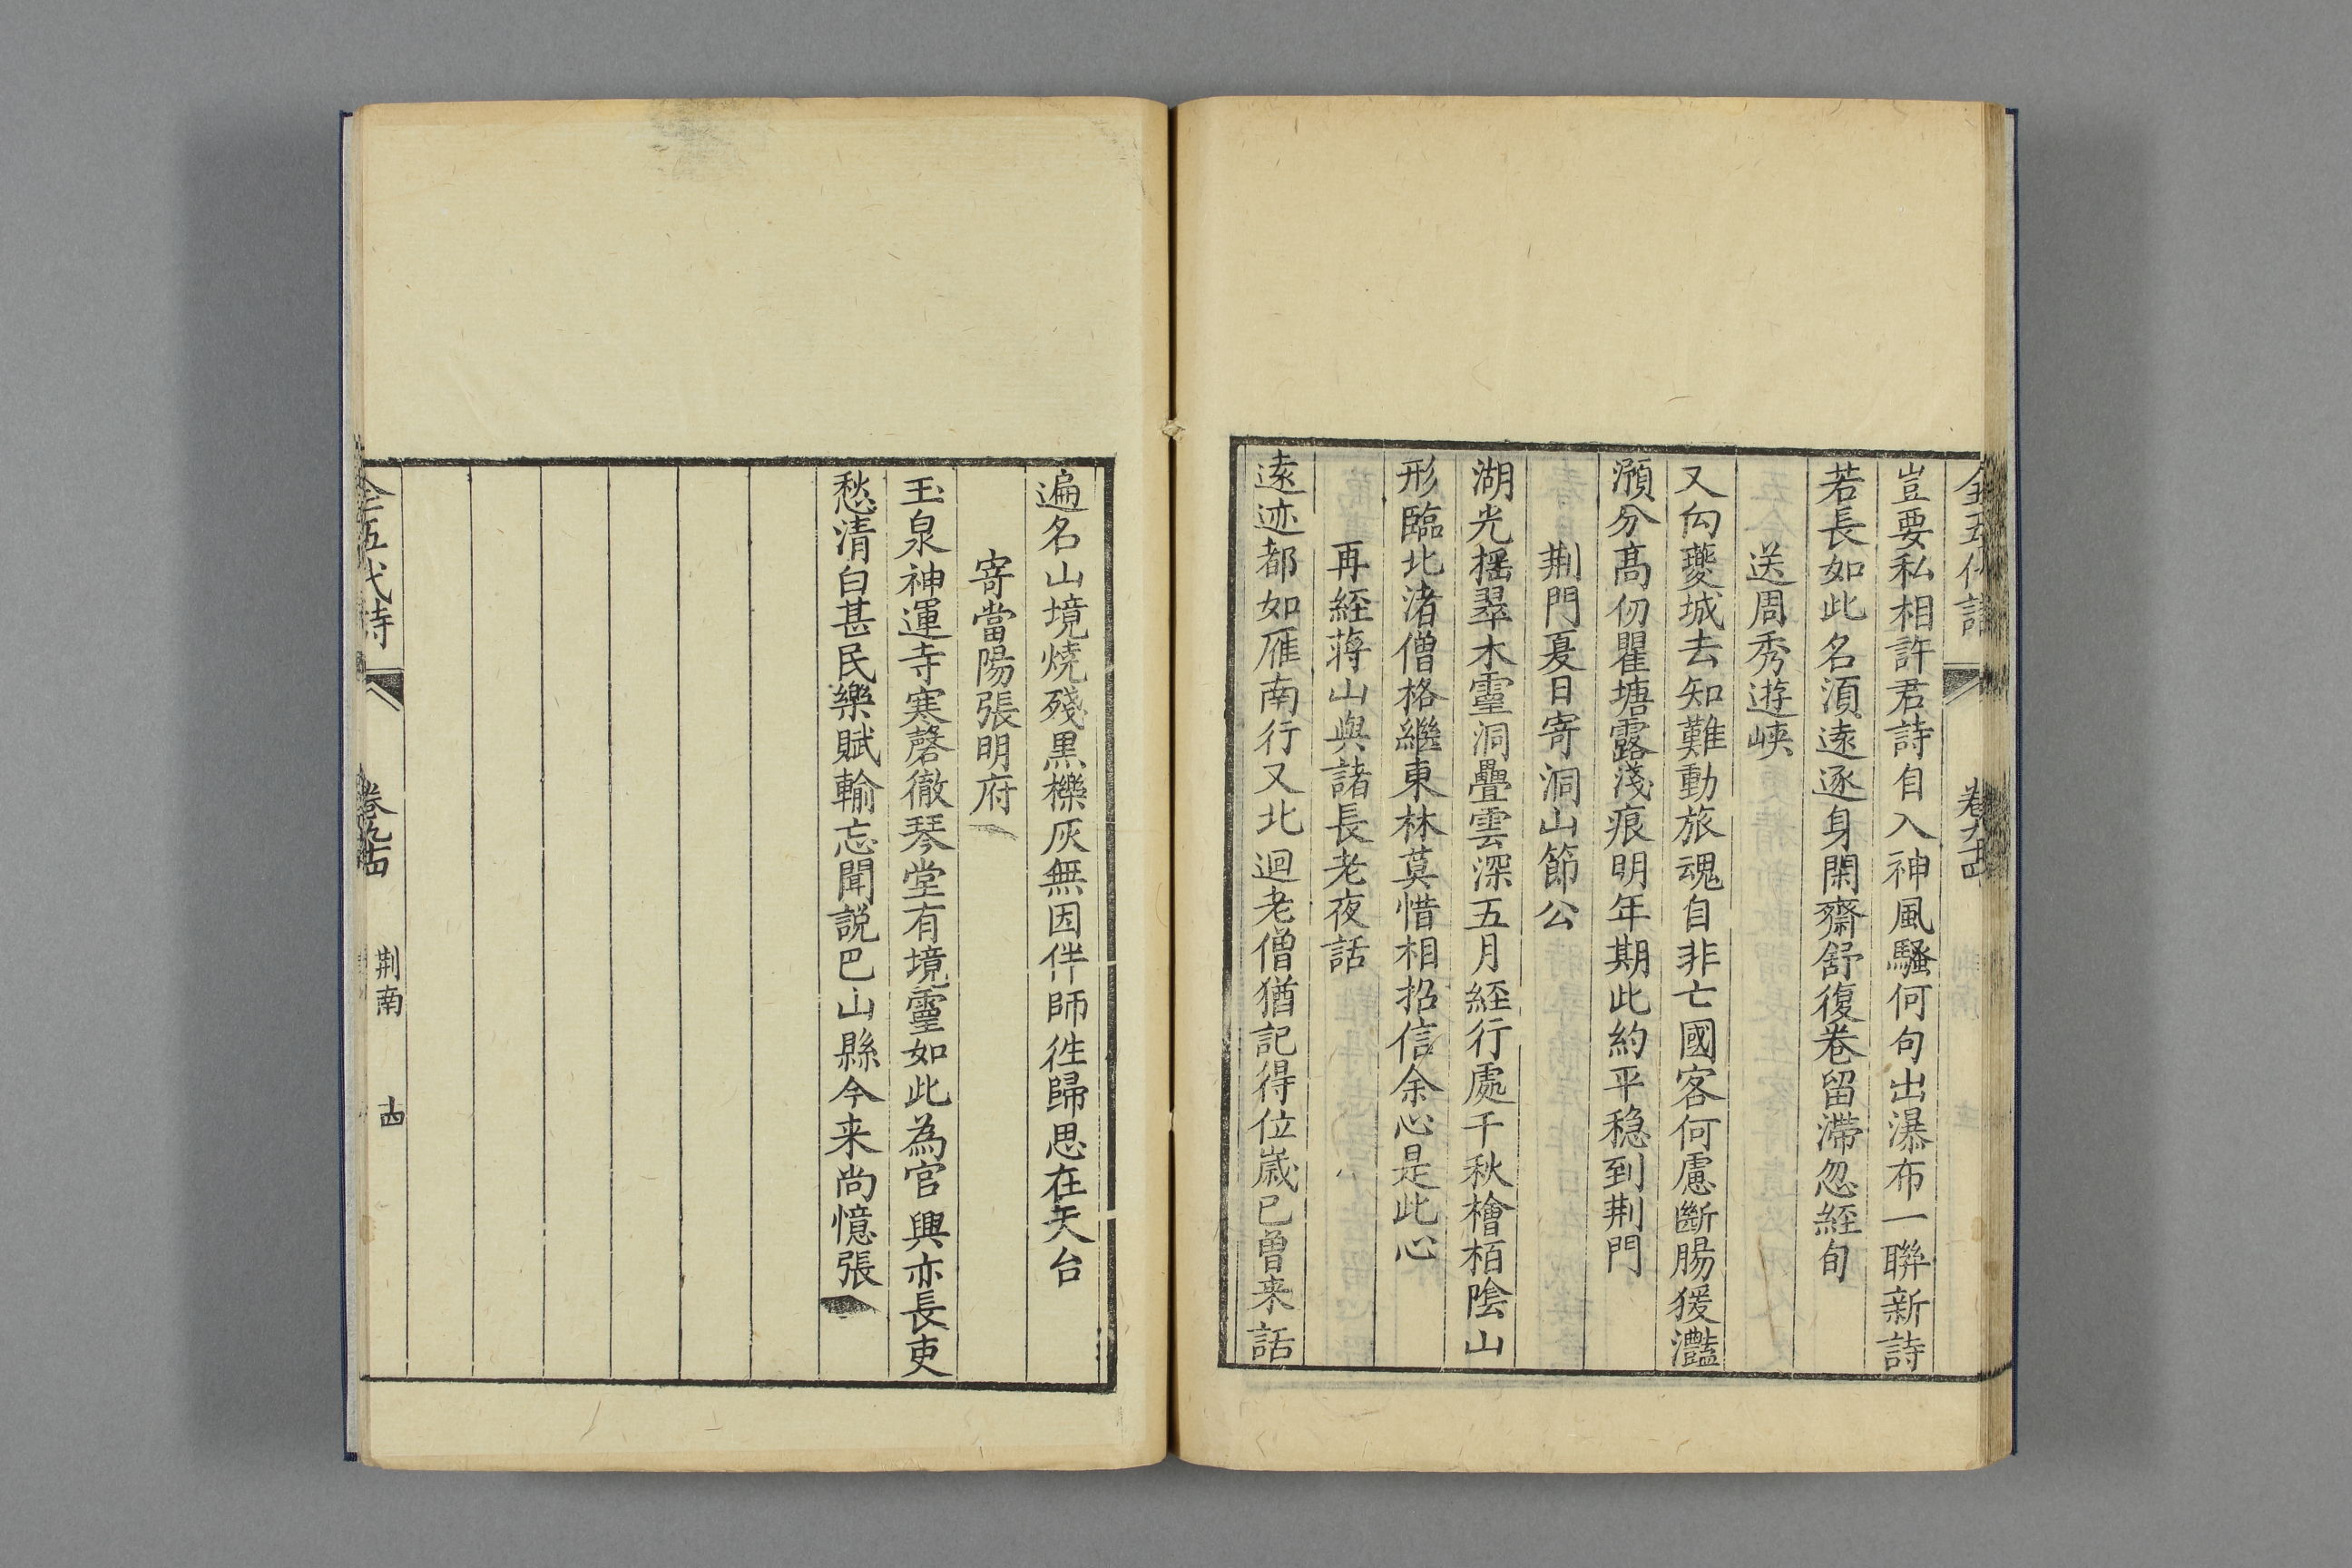 全五代詩 卷九十四
豈要私相許君詩自入神風騷何句出瀑布一聯新詩
若長如此名須遠逐身閑齋舒復卷留滯忽經旬
送周秀遊峽
又向夔城去知難動旅魂自非亡國客何慮斷腸猨灩
澦分髙仞瞿塘露淺痕明年期此約平穏到荆門
荆門夏日寄洞山節公
湖光摇翠木靈洞疊雲深五月經行處千秋檜栢陰山
形臨北渚僧格繼東林莫惜相招信余心是此心
再經蒋山與諸長老夜話
遠迹都如雁南行又北迴老僧猶記得位歲已曾来話
遍名山境燒殘黒櫟灰無因伴師徃歸思在天台
寄當陽張明府
玉泉神運寺寒磬徹琴堂有境靈如此為官興亦長吏
愁清白甚民樂賦輸忘聞説巴山縣今来尚憶張
全五代詩 卷九十四 荆南 十四